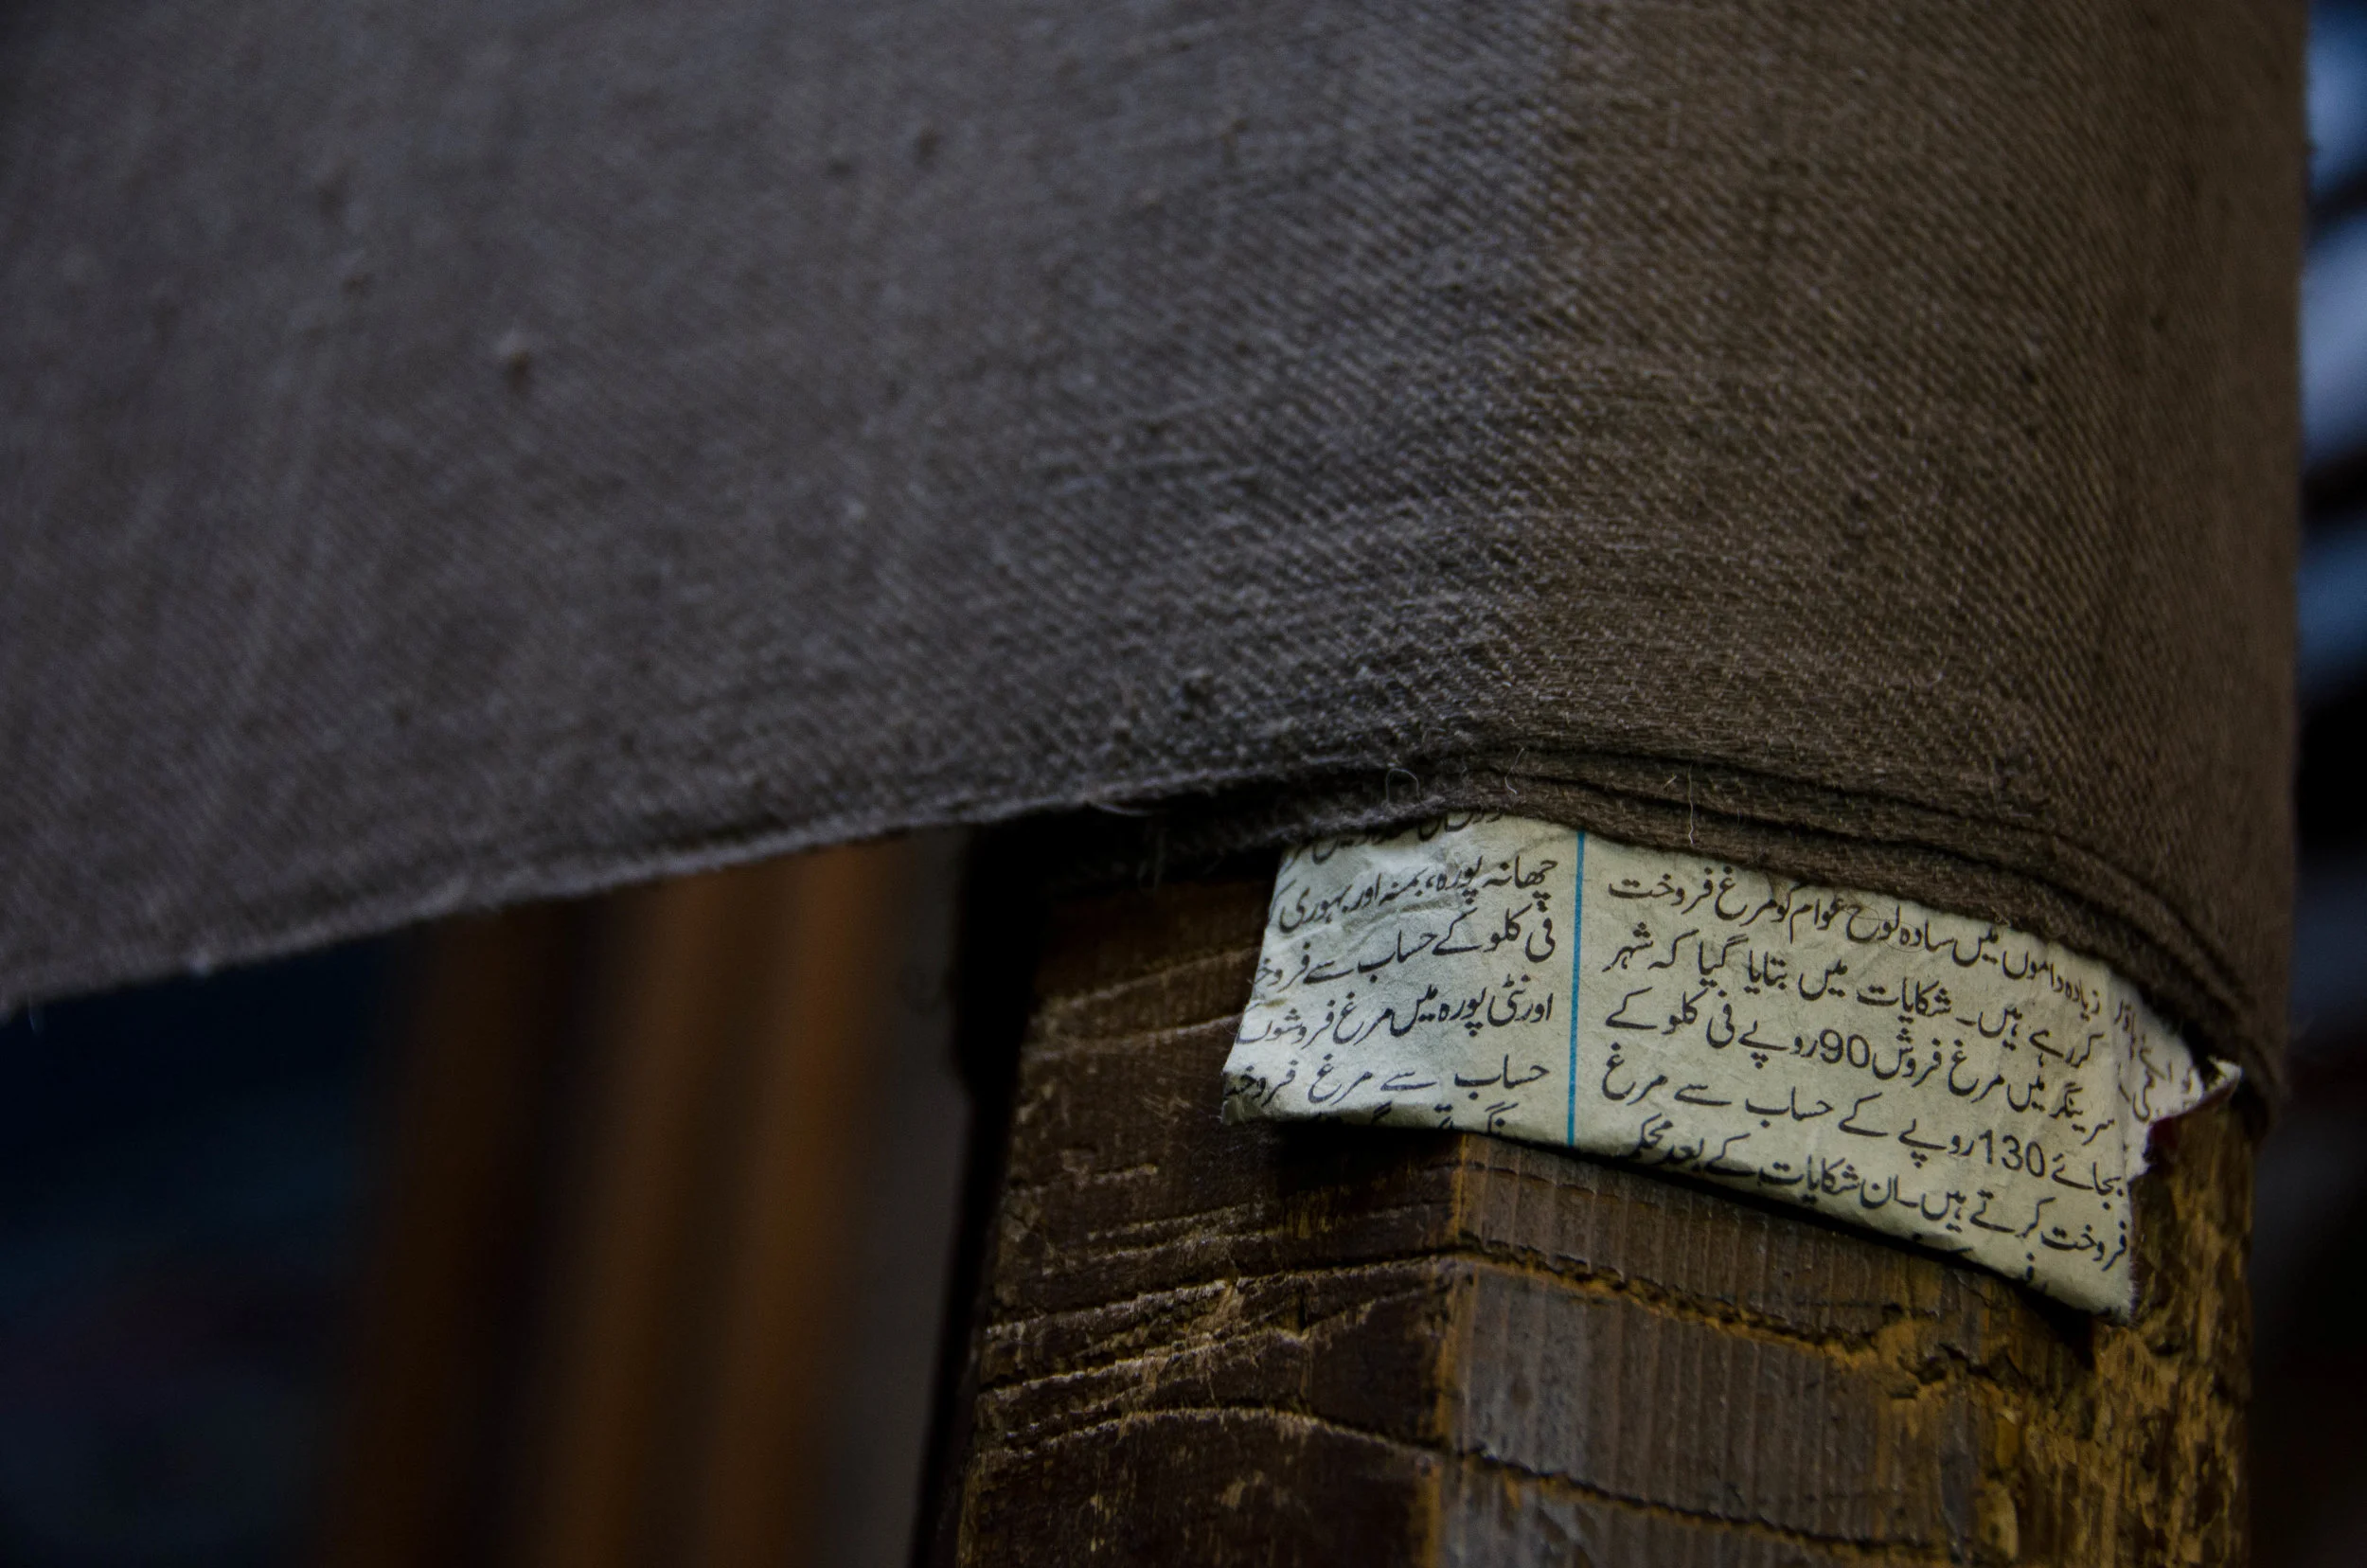 زیادہ داموں میں سادہ لوح عوام کو مرغ فروخت
کررہے ہیں۔ شکایات میں بتایا گیا کہ شہر
سرینگر میں مرغ فروش 90روپے فی کلو کے
بجائے 130روپے کے حساب سے مرغ
فروخت کرتے ہیں۔ان شکایات کے بعد محکمہ
چھانہ پورہ، بمنہ اور بہوری
فی کلو کے حساب سے
اور نٹی پورہ میں مرغ فروشوں
حساب سے مرغ